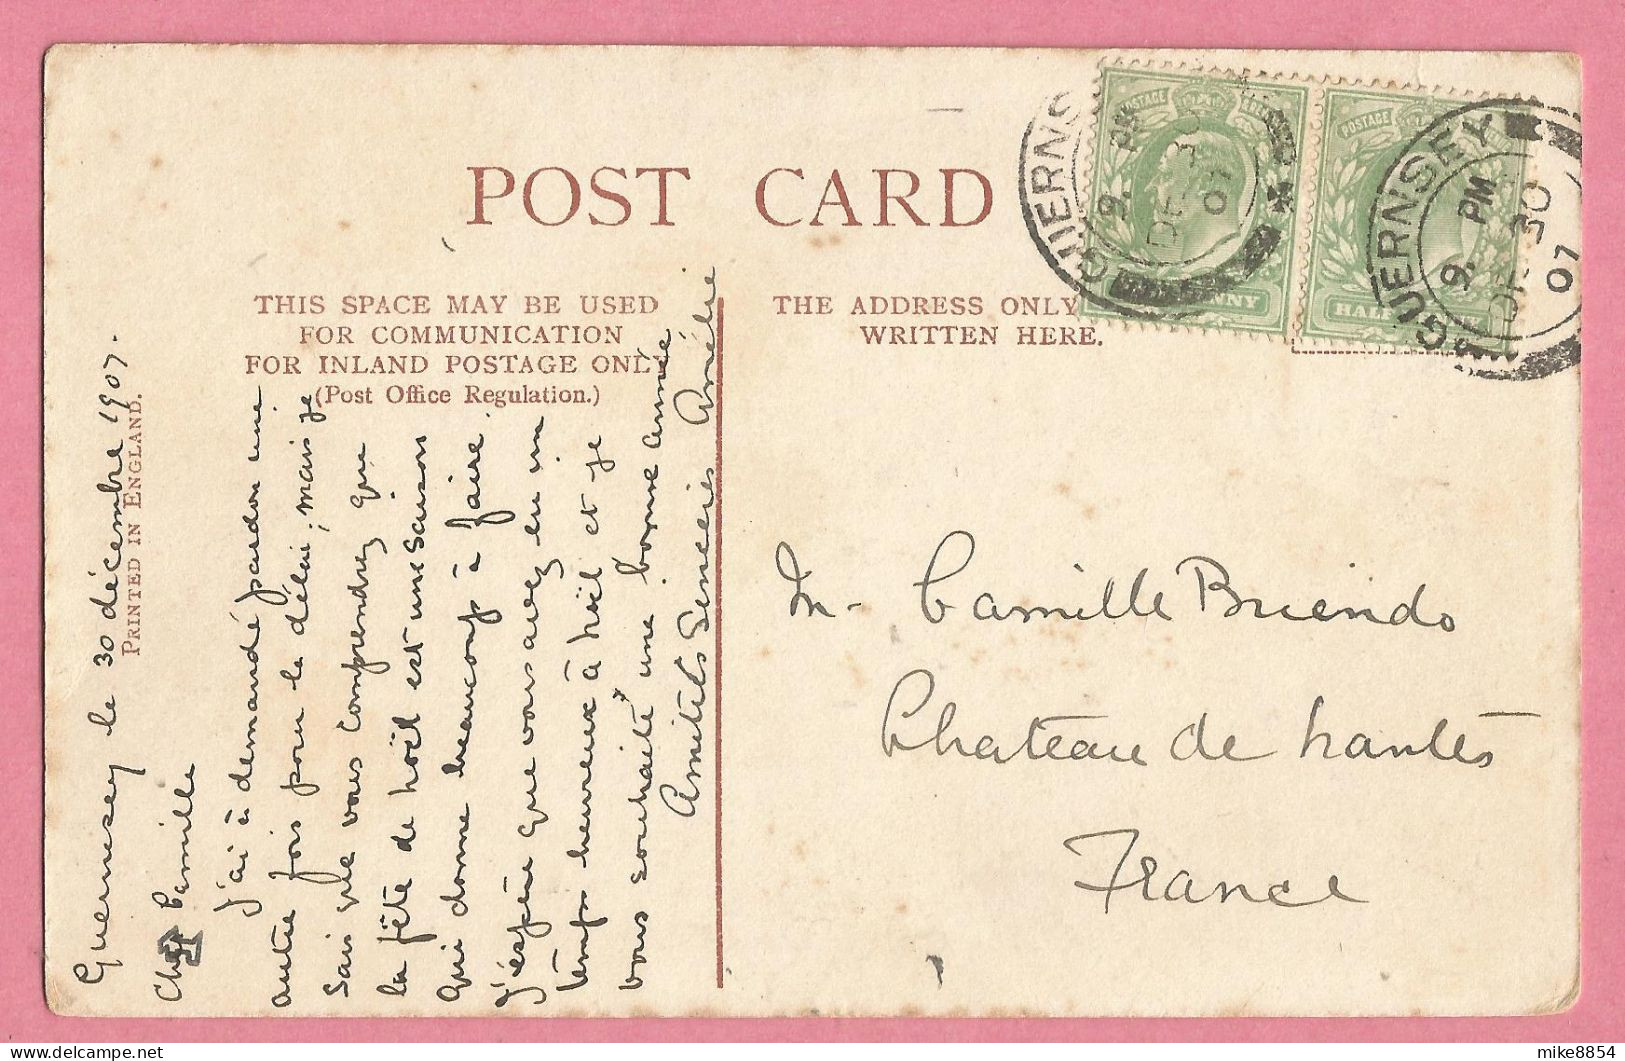 POST CARD
THIS SPACE MAY BE USED
FOR COMMUNICATION
FOR INLAND POSTAGE ONLY
(Post Office Regulation.)
THE ADDRESS ONLY
WRITTEN HERE.
PRINTED IN ENGLAND.
GUERNSEY
9. PM
DE 30
07
GUERNSEY
9. PM
DE 30
07
POSTAGE
POSTAGE
HALF
Guernesey le 30 décembre 1907.
Cher Camille
J'ai à demandé pardon une
autre fois pour le délai; mais je
sais que vous comprendrez que
la fête de noël est une saison
qui donne beaucoup à faire.
J'espère que vous avez eu un
temps heureux à noël et je
vous souhaite une bonne année
Amitiés Sincères Amélie
M. Camille Briendo
Chateau de nantes
France
mike8854